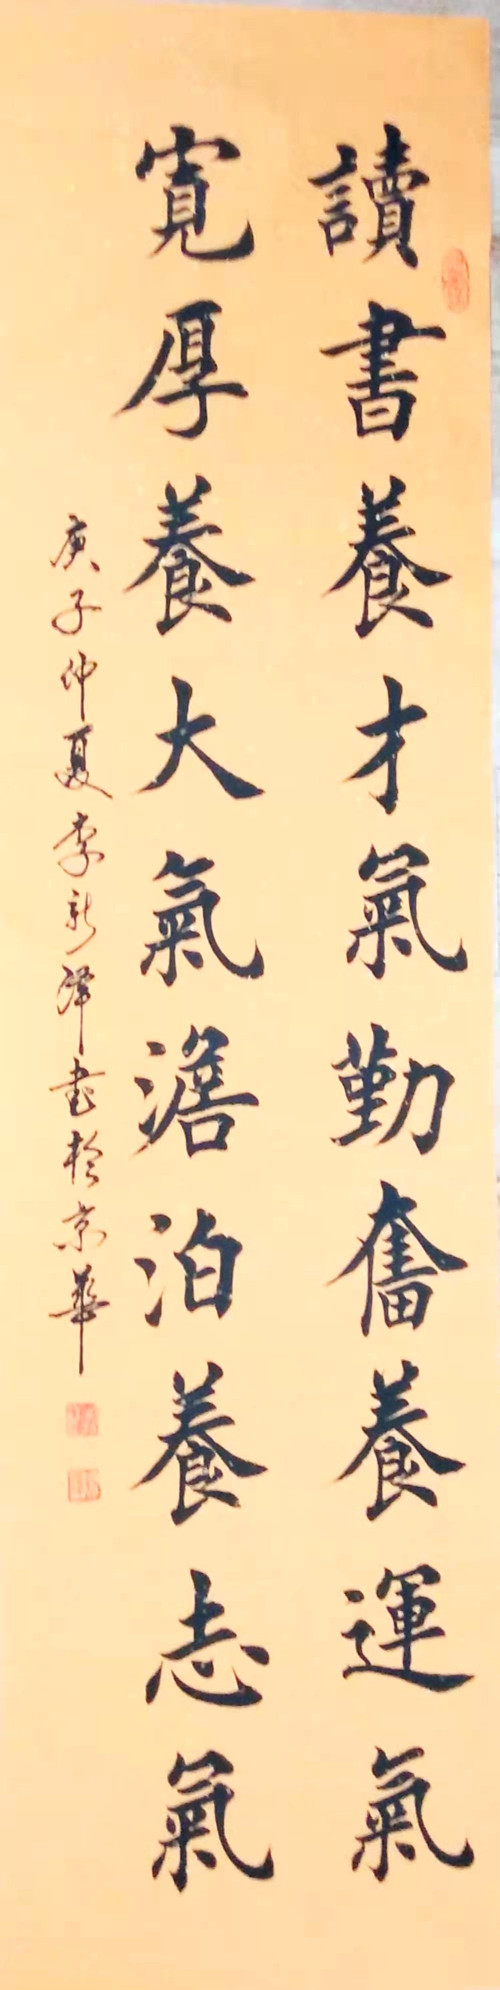 讀書養才氣勤奮養運氣
寬厚養大氣澹泊養志氣
庚子仲夏李新泽書於京華